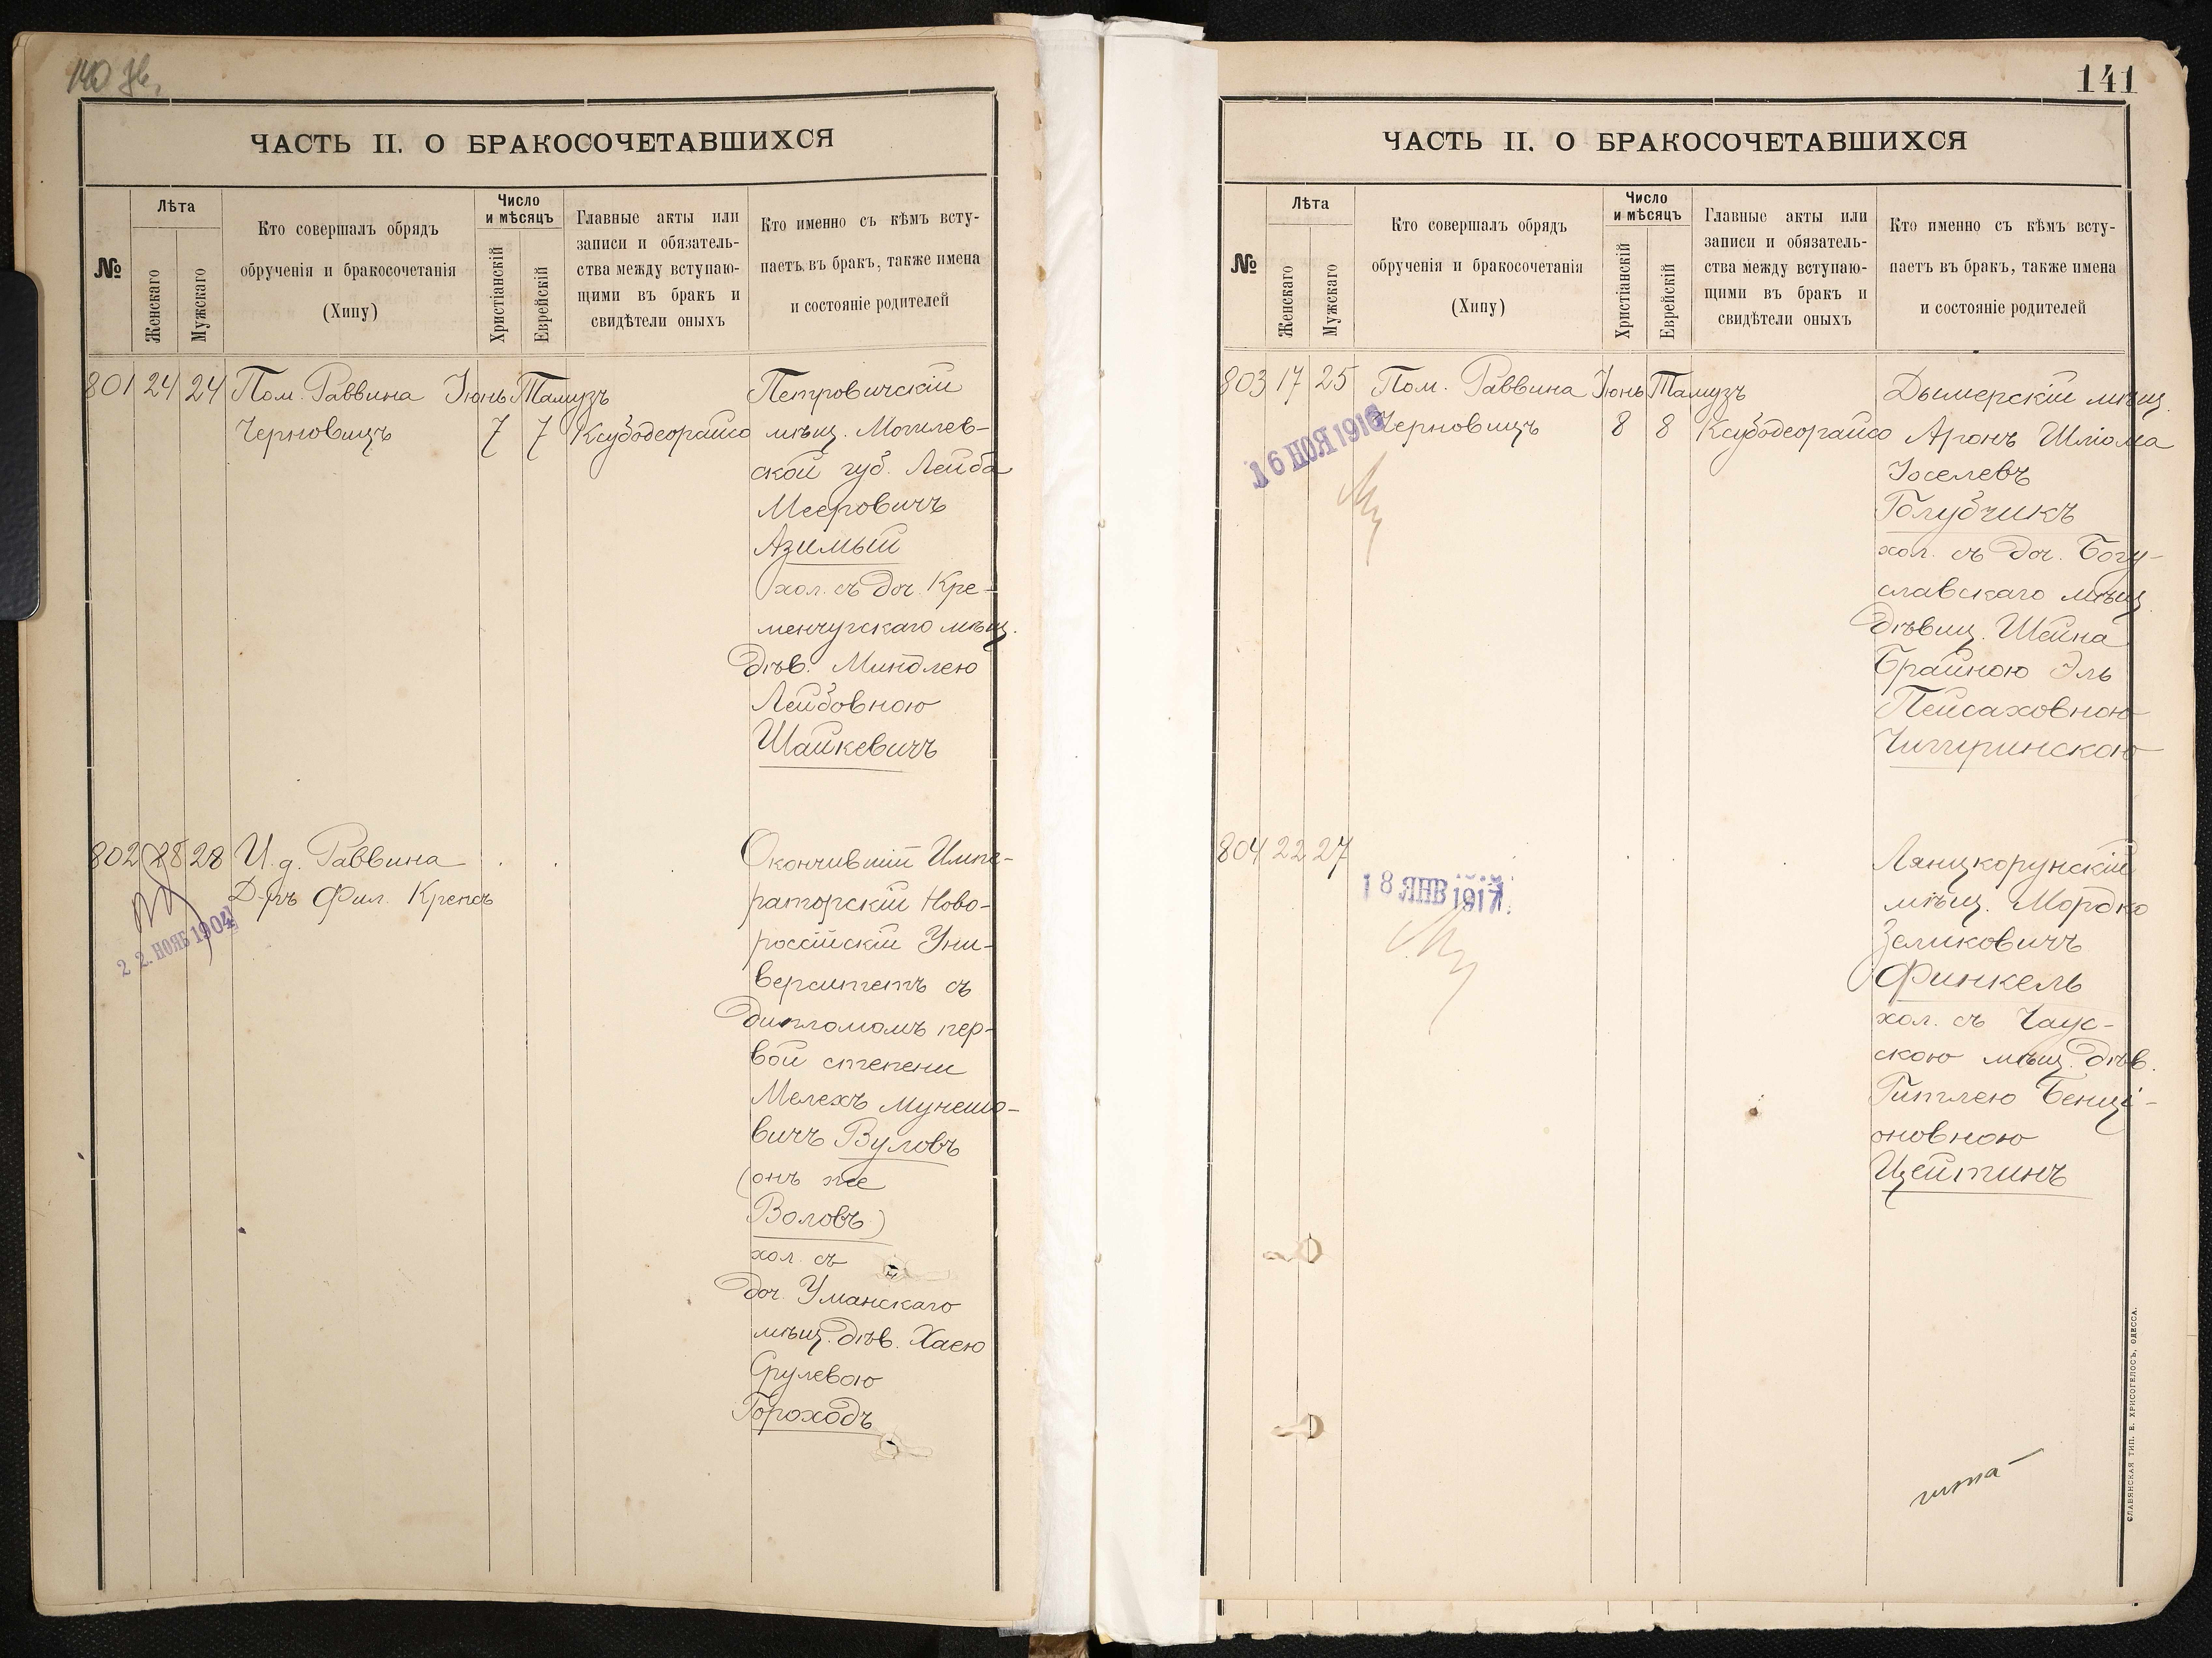 140 зв.
ЧАСТЬ II. О БРАКОСОЧЕТАВШИХСЯ
№
Лѣта
Женскаго
Мужскаго
Кто совершалъ обрядъ
обрученія и бракосочетанія
(Хипу)
Число
и мѣсяцъ
Христіанскій
Еврейскій
Главные акты или
записи и обязатель-
ства между вступаю-
щими въ бракъ и
свидѣтели оныхъ
Кто именно съ кѣмъ всту-
паетъ въ бракъ, также имена
и состояніе родителей
801 24 24 Пом. Раввина Іюнь Тамузъ Петровичскій
Черновицъ 7 7 Ксубодеорайсо мѣщ. Могилев-
ской губ. Лейба
Мееровичъ
Азимый
хол. съ доч. Кре-
менчугскаго мѣщ.
дѣв. Миндлею
Лейбовною
Шайкевичъ
802 28 28 И. д. Раввина Окончившій Импе-
Д-ръ Фил. Крепсъ раторскій Ново-
22. НОЯБ 1904 россійскій Уни-
верситетъ съ
дипломомъ пер-
вой степени
Мелехъ Мунешо-
вичъ Вуловъ
(онъ же
Воловъ)
хол. съ
доч. Уманскаго
мѣщ. дѣв. Хаею
Срулевою
Гороходъ
141
ЧАСТЬ II. О БРАКОСОЧЕТАВШИХСЯ
№
Лѣта
Женскаго
Мужскаго
Кто совершалъ обрядъ
обрученія и бракосочетанія
(Хипу)
Число
и мѣсяцъ
Христіанскій
Еврейскій
Главные акты или
записи и обязатель-
ства между вступаю-
щими въ бракъ и
свидѣтели оныхъ
Кто именно съ кѣмъ всту-
паетъ въ бракъ, также имена
и состояніе родителей
803 17 25 Пом. Раввина Іюнь Тамузъ Дымерскій мѣщ.
Черновицъ 8 8 Ксубодеорайсо Аронъ Шліома
16 НОЯ 1916 Іоселевъ
Голубчикъ
хол. съ доч. Богу-
славскаго мѣщ.
дѣвиц. Шейна
Брайною Эль
Пейсаховною
Чигиринскою
804 22 27 Лянцкорунскій
18 ЯНВ 1917 мѣщ. Мордко
Зеликовичъ
Финкель
хол. съ Чаус-
скою мѣщ. дѣв.
Гитлею Бенці-
оновною
Цейтинъ
СЛАВЯНСКАЯ ТИП. Е. ХРИСОГЕЛОСЪ, ОДЕССА.